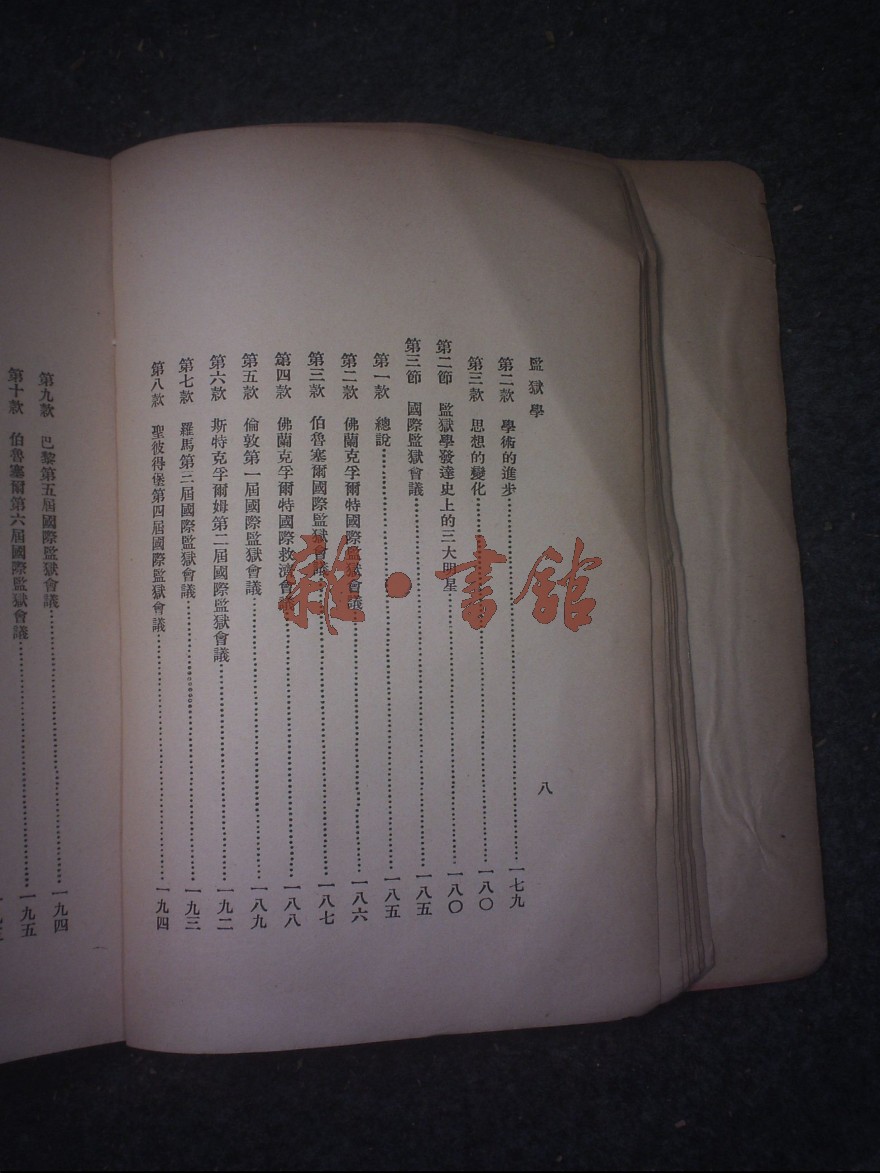 監獄學
八
第二款 學術的進步 一七九
第三款 思想的變化 一八〇
第二節 監獄學發達史上的三大明星 一八〇
第三節 國際監獄會議 一八五
第一款 總說 一八五
第二款 佛蘭克孚爾特國際監獄會議 一八六
第三款 伯魯塞爾國際監獄會議 一八七
第四款 佛蘭克孚爾特國際救濟會議 一八八
第五款 倫敦第一屆國際監獄會議 一八九
第六款 斯特克孚爾姆第二屆國際監獄會議 一九二
第七款 羅馬第三屆國際監獄會議 一九三
第八款 聖彼得堡第四屆國際監獄會議 一九四
第九款 巴黎第五屆國際監獄會議 一九四
第十款 伯魯塞爾第六屆國際監獄會議 一九五
雜·書館